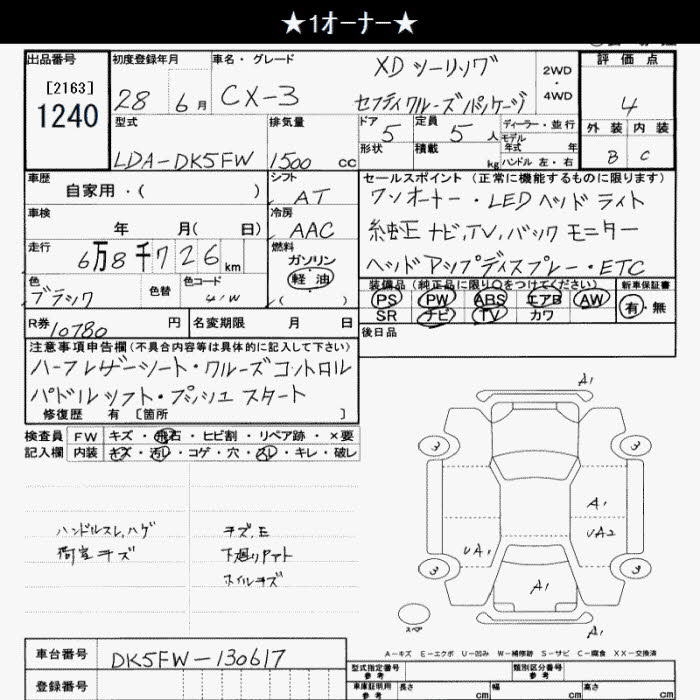 ★1ｵｰﾅｰ★
出品番号 初度登録年月 車名・グレード XD ツーリング 2WD ・ 4WD 評価点
[2163] 1240 28 6月 CX-3 セフティクルーズパッケージ 4
型式 排気量 ドア 5 定員 5人 ディーラー・並行 外装 内装
LDA-DK5FW 1500 cc 形状 積載 kg モデル年式 年 ハンドル 左・右 B C
車歴 自家用・( ) シフト AT セールスポイント (正常に機能するものに限ります)
ワンオーナー・LEDヘッドライト
車検 年 月( 日) 冷房 AAC 純正ナビ,TV,バックモニター
走行 6万8千726km 燃料 ガソリン 軽油 ( ) ヘッドアップディスプレー・ETC
色 ブラック 色替 色コード 41W
装備品 (純正品に限り○をつけてください) 新車保証書
PS PW ABS エアB AW 有・無
SR ナビ TV カワ
R券 10780 円 名変期限 月 日 後日品
注意事項申告欄(不具合内容等は具体的に記入して下さい)
ハーフレザーシート・クルーズコントロル
パドルシフト・プッシュスタート
修復歴 有 [箇所 ]
検査員 FW キズ・飛石・ヒビ割・リペア跡・×要
記入欄 内装 キズ・汚レ・コゲ・穴・スレ・キレ・破レ
ハンドルスレ,ハゲ キズ,E
荷室キズ 下廻りPアト
ホイルキズ
A1
3 3
A1
UA1 UA2
3 3
A1
スペア
A1
A-キズ E-エクボ U-凹み W-補修跡 S-サビ C-腐食 XX-交換済
車台番号 DK5FW-130617
型式指定番号 参考 類別区分番号 参考
登録番号 車庫証明用 参考 長さ cm 幅 cm 高さ cm